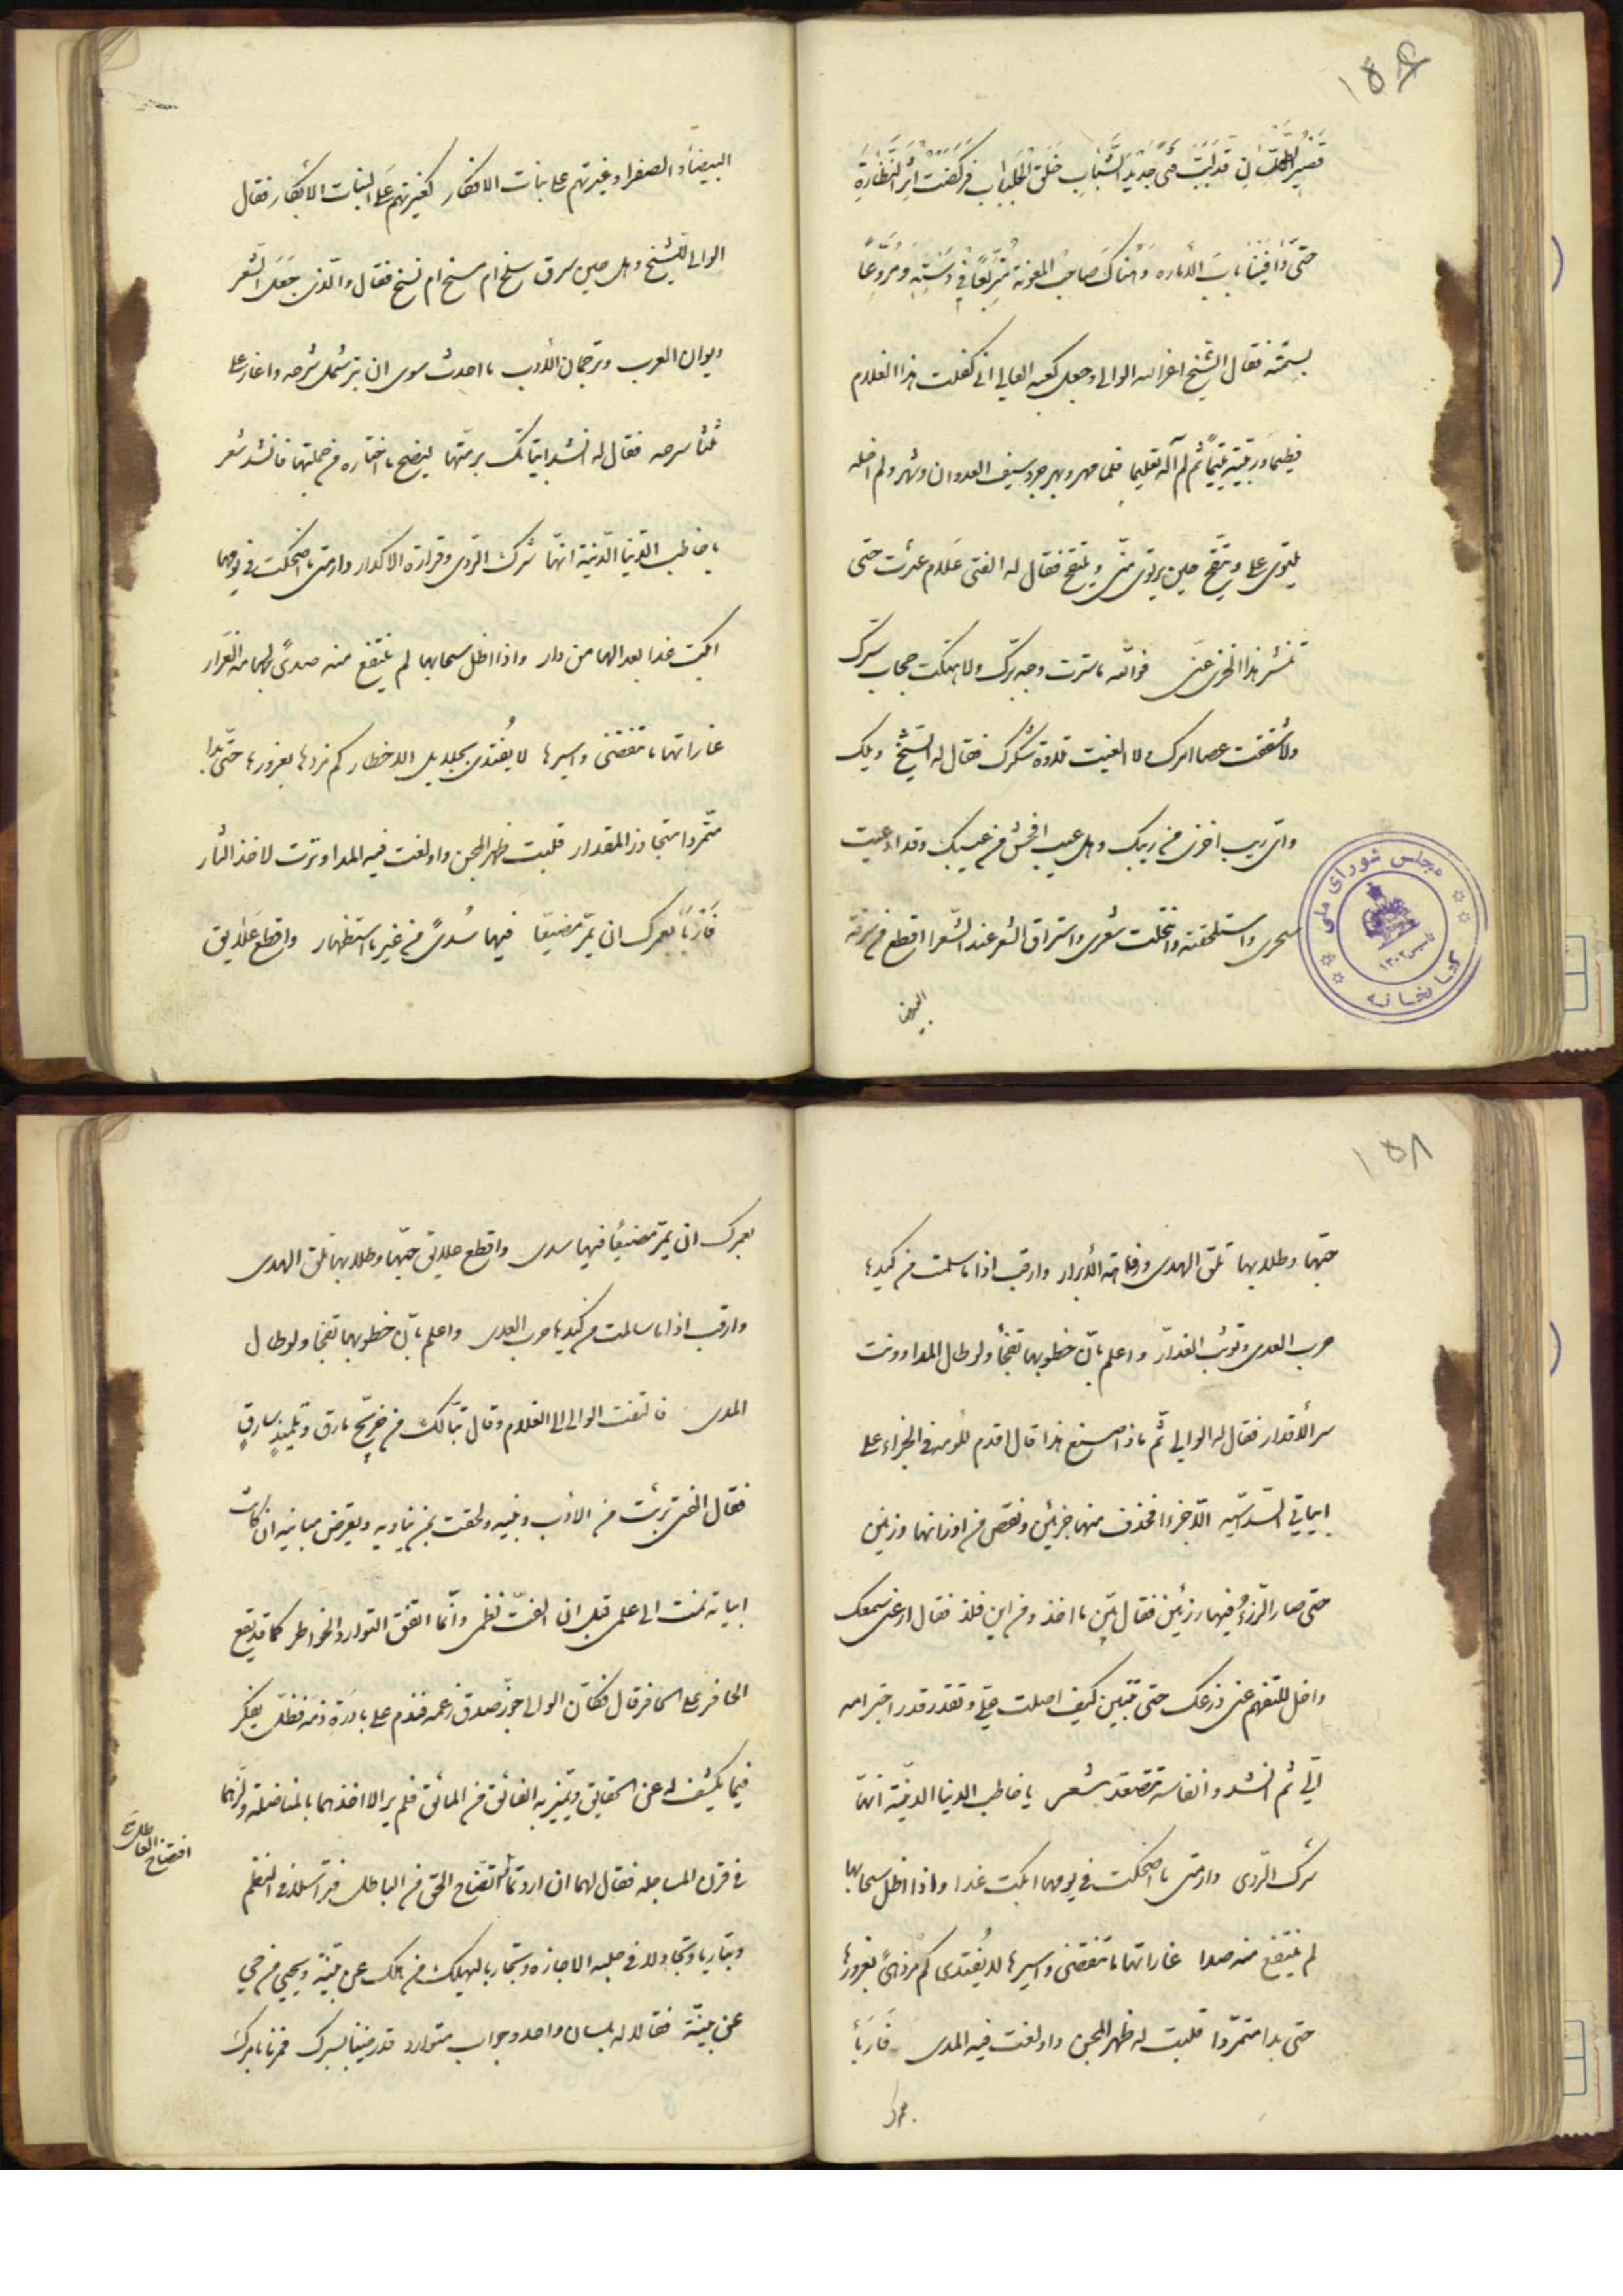 ۱۵۶
قصير الطيلسان قد لبب فتى جديد الشباب خلق الجلباب فركضت اثر النظارة
حتى وافينا باب الأمارة وهناك صاحب المعونة متربعا في دسته ومروعا
بسمته فقال الشيخ اعز الله الوالى وجعل كعبه العالى انى كفلت هذا الغلام
فطيما وربيته يتيما ثم لم آله تعليما فلما مهر وبهر جرد سيف العدوان وشهر ولم اخله
يلتوى على ويتقح حين يرتوى منى ويلتقح فقال له الفتى علام عثرت حتى
تنشر هذا الخزى عنى فوالله ما سترت وجه برك ولا هتكت حجاب سترك
ولا شققت عصا امرك ولا الغيت تلاوة شكرك فقال له الشيخ ويلك
واى ريب اخزى من ريبك وهل عيب افحش من عيبك وقد ادعيت
سحرى واستلحقته وانتحلت شعرى واسترقته واستراق الشعر عند الشعرا افظع من سرقة
البيضا
مجلس شورای ملی
کتابخانه
تاسیس ۱۳۰۲
البيضأ والصفرا وغيرتهم على بنات الافكار كغيرتهم على البنات الابكار فقال
الوالى للشيخ وهل حين سرق سلخ ام مسخ ام نسخ فقال والذى جعل الشعر
ديوان العرب وترجمان الأدب ما احدث سوى ان بتر شمل شرحه واغار على
ثلثا سرحه فقال له انشد ابياتك برمتها ليضح ما اختاره من جملتها فانشد شعر
يا خاطب الدنيا الدنية انها شرك الردى وقرارة الاكدار دار متى ما اضحكت فى يومها
ابكت غدا بعدا لها من دار واذا اظل سحابها لم ينتفع منه صدى لجهامه الغرار
غاراتها ما تنقضى واسيرها لا يفتدى بجلايل الاخطار كم مزدها بغرورها حتى بدا
متمردا متجاوز المقدار قلبت ظهر المجن واولغت فيه المدا ونزت لاخذ الثار
فاربأ بعمرك ان يمر مضيعا فيها سدى من غير ما استظهار واقطع علايق
۱۵۸
حبها وطلابها تلق الهدى ورفاهة الأبرار وارقب اذا ما سلمت من كيدها
حرب العدى وتوثب الغدار واعلم بان خطوبها تفجأ ولو طال المدا وونت
سر الأقدار فقال له الوالى ثم ماذا صنع هذا قال اقدم للومه فى الجزاء على
ابياتى السداسية الأجزا فحذف منها جزئين ونقص من اوزانها وزنين
حتى صار الرزء فيها رزئين فقال بين ما اخذ ومن اين فلذ فقال ارعنى سمعك
واخل للتفهم عنى ذرعك حتى تتبين كيف اصلت على وتقدر قدر اجترامه
الى ثم انشد وانفاسه تتصعد شعر يا خاطب الدنيا الدنية انها
شرك الردى دار متى ما اضحكت فى يومها ابكت غدا واذا اظل سحابها
لم ينتفع منه صدا غاراتها ما تنقضى واسيرها لا يفتدى كم مزدهى بغرورها
حتى بدا متمردا قلبت له ظهر المجن واولغت فيه المدى فاربأ
بعمرك
بعمرك ان يمر مضيعا فيها سدى واقطع علايق حبها وطلابها تلق الهدى
وارقب اذا ما سالمت من كيدها حرب العدى واعلم بان خطوبها تفجا ولو طال
المدى فالتفت الوالى الى الغلام وقال تبا لك من خريج مارق وتلميذ سارق
فقال الفتى برئت من الأدب وبنيه ولحقت بمن يناويه ويقوض مبانيه ان كانت
ابياته نمت الى علمى قبل ان الفت نظمى وانما اتفق التوارد الخواطر كما قد يقع
الحافر على الحافر قال فكان الوالى جوز صدق زعمه فندم على بادرة ذمه فظل يفكر
فيما يكشف له عن الحقايق ويتميز به الفائق من المائق فلم ير الا اخذهما بالمناضلة ولزهما
فى قرن المساجله فقال لهما ان اردتما افتضاح العاطل واتضاح الحق من الباطل فتراسلا فى النظم
وتباريا وتجاولا فى حلبة الاجازه وتجاريا ليهلك من هلك عن بينة ويحيى من حي
عن بينة فقالا له بلسان واحد وجواب متوارد قد رضينا بسبرك فمرنا بامرك
افتضاح العاطل